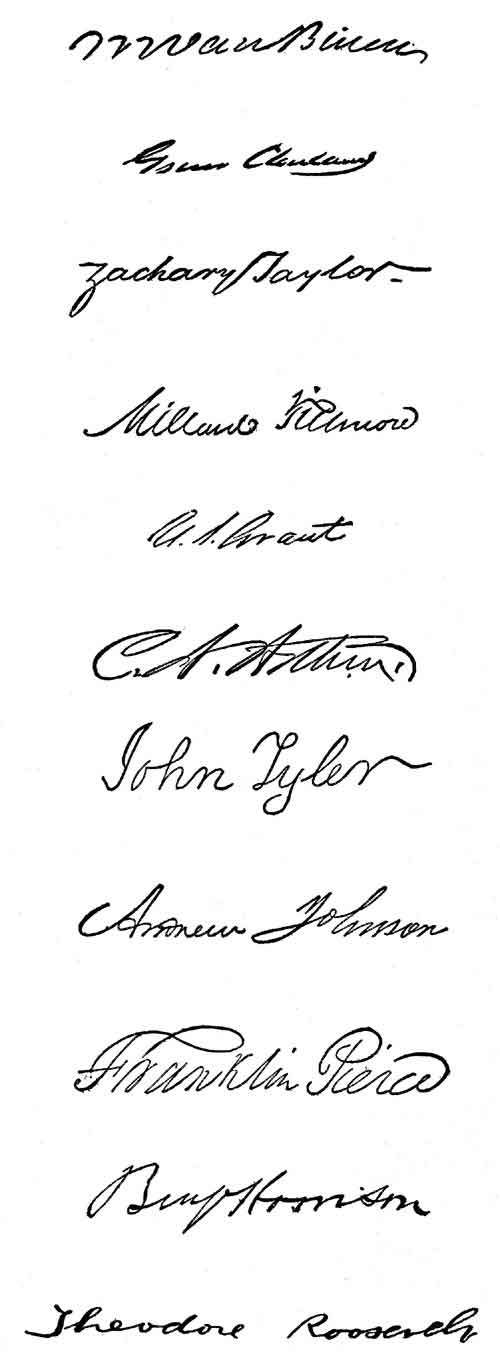 M Van Buren
Grover Cleveland
Zachary Taylor
Millard Fillmore
U. S. Grant
C. A. Arthur.
John Tyler
Andrew Johnson
Franklin Pierce
Benj Harrison
Theodore Roosevelt